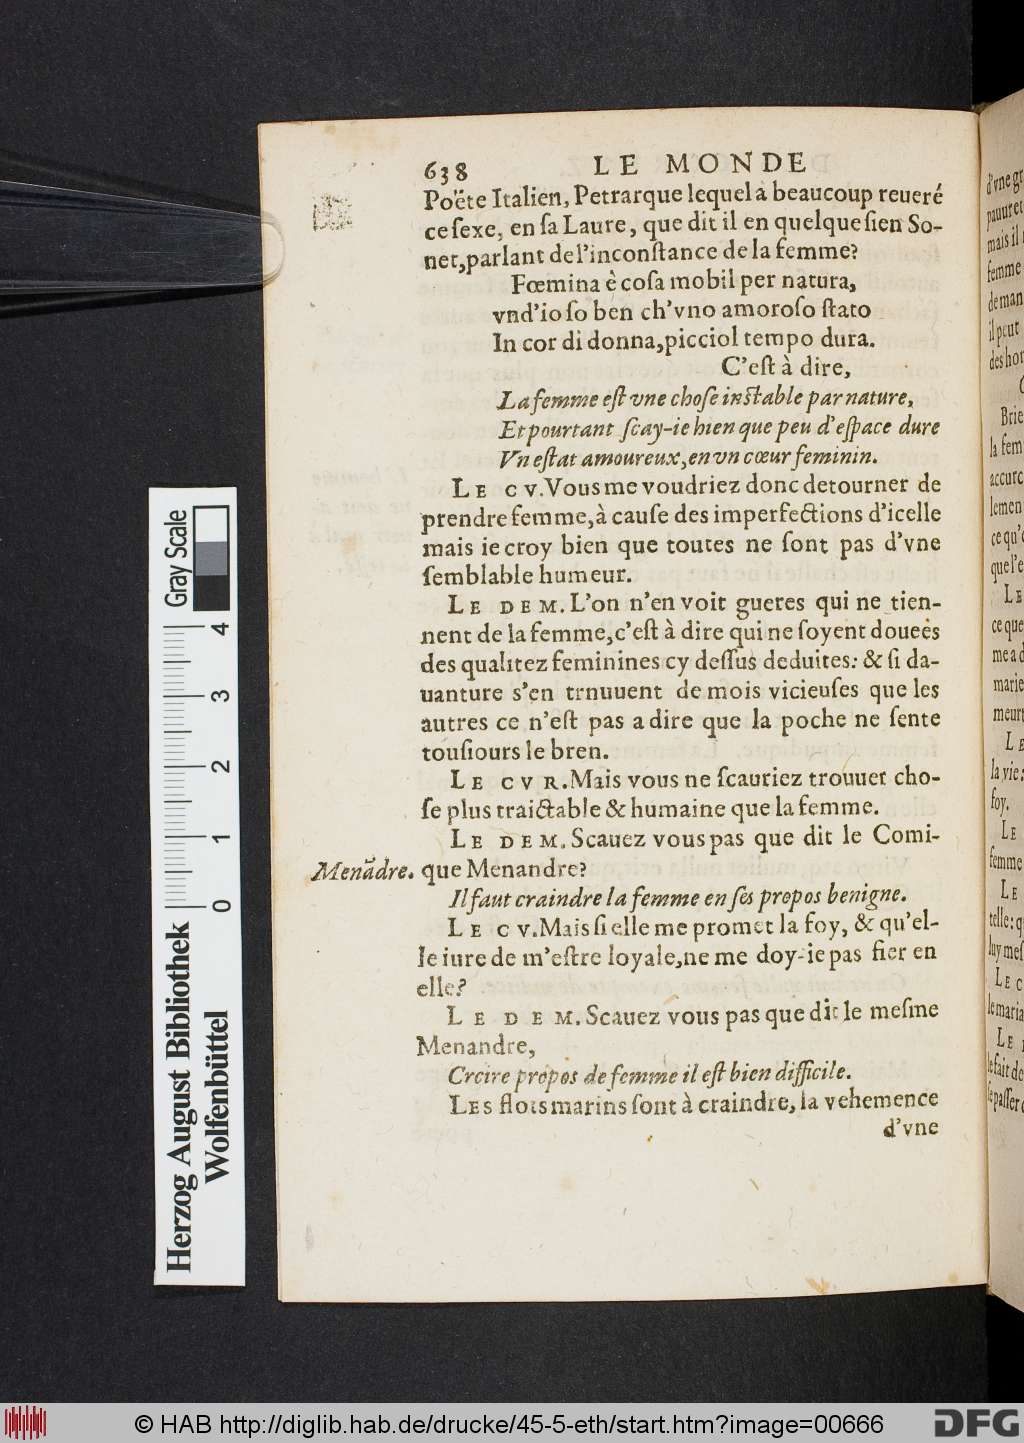 638 LE MONDE
Poëte Italien, Petrarque lequel à beaucoup reueré
ce ſexe, en ſa Laure, que dit il en quelque ſien So-
net, parlant de l'inconſtance de la femme?
Fœmina è coſa mobil per natura,
vnd'io ſo ben ch'vno amoroſo ſtato
In cor di donna, picciol tempo dura.
C'eſt à dire,
La femme eſt vne choſe inſtable par nature,
Et pourtant ſcay-ie bien que peu d'eſpace dure
Vn eſtat amoureux, en vn cœur feminin.
LE CV. Vous me voudriez donc detourner de
prendre femme, à cauſe des imperfections d'icelle
mais ie croy bien que toutes ne ſont pas d'vne
ſemblable humeur.
LE DEM. L'on n'en voit gueres qui ne tien-
nent de la femme, c'eſt à dire qui ne ſoyent doueés
des qualitez feminines cy deſſus deduites: & ſi da-
uanture s'en trnuuent de mois vicieuſes que les
autres ce n'eſt pas a dire que la poche ne ſente
touſiours le bren.
LE CVR. Mais vous ne ſcauriez trouuer cho-
ſe plus traictable & humaine que la femme.
LE DEM. Scauez vous pas que dit le Comi-
Menãdre. que Menandre?
Il faut craindre la femme en ſes propos benigne.
LE CV. Mais ſi elle me promet la foy, & qu'el-
le iure de m'eſtre loyale, ne me doy-ie pas fier en
elle?
LE DEM. Scauez vous pas que dit le meſme
Menandre,
Croire propos de femme il eſt bien difficile.
LES flots marins ſont à craindre, la vehemence
d'vne
d'vne gr
pauuret
mais il
femme
de man
il peut
des hor
C
Brie
la fem
accurc
lemen
ce qu'
que l'e
LE
ce que
me a d
marie
meurt
LE
la vie:
foy.
LE
femme
LE
telle: q
luy meſ
LE C
le maria
LE
le fait de
ſe paſſer
Gray Scale
0 1 2 3 4
Herzog August Bibliothek
Wolfenbüttel
© HAB http://diglib.hab.de/drucke/45-5-eth/start.htm?image=00666
DFG